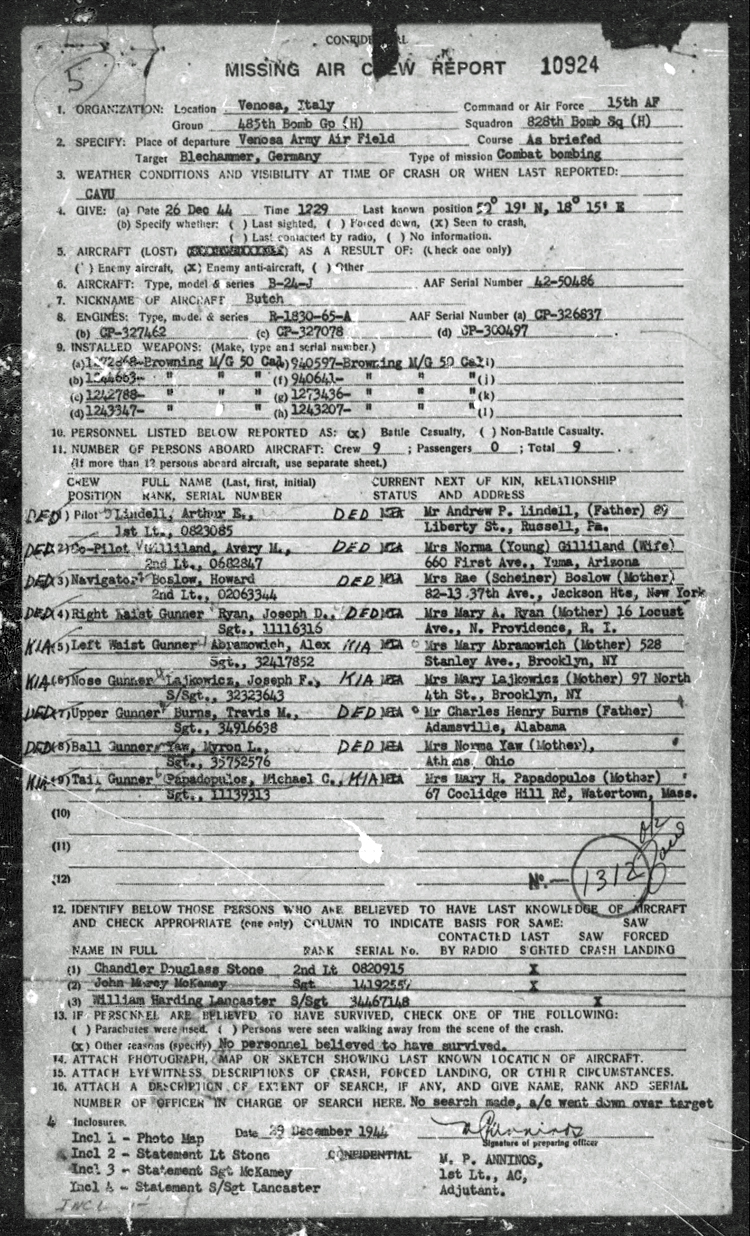 CONFIDENTIAL
5
MISSING AIR CREW REPORT 10924
1. ORGANIZATION: Location Venosa, Italy Command or Air Force 15th AF
Group 485th Bomb Gp (H) Squadron 828th Bomb Sq (H)
2. SPECIFY: Place of departure Venosa Army Air Field Course As briefed
Target Blechammer, Germany Type of mission Combat bombing
3. WEATHER CONDITIONS AND VISIBILITY AT TIME OF CRASH OR WHEN LAST REPORTED:
CAVU
4. GIVE: (a) Date 26 Dec 44 Time 1229 Last known position 50° 19' N, 18° 15' E
(b) Specify whether: ( ) Last sighted, ( ) Forced down, (X) Seen to crash,
( ) Last contacted by radio, ( ) No information.
5. AIRCRAFT (LOST) AS A RESULT OF: (Check one only)
( ) Enemy aircraft, (X) Enemy anti-aircraft, ( ) Other
6. AIRCRAFT: Type, model & series B-24-J AAF Serial Number 42-50486
7. NICKNAME OF AIRCRAFT Butch
8. ENGINES: Type, model & series R-1830-65-A AAF Serial Number (a) CP-326837
(b) CP-327462 (c) CP-327078 (d) CP-300497
9. INSTALLED WEAPONS: (Make, type and serial number.)
(a) Browning M/G 50 Cal (e) 940597-Browning M/G 50 Cal (i)
(b) 1244663- " " (f) 940641- " " " (j)
(c) 1242788- " " (g) 1273436- " " " (k)
(d) 1243347- " " (h) 1243207- " " " (l)
10. PERSONNEL LISTED BELOW REPORTED AS: (x) Battle Casualty, ( ) Non-Battle Casualty.
11. NUMBER OF PERSONS ABOARD AIRCRAFT: Crew 9 ; Passengers 0 ; Total 9 .
(If more than 12 persons aboard aircraft, use separate sheet.)
CREW FULL NAME (Last, first, initial) CURRENT NEXT OF KIN, RELATIONSHIP
POSITION RANK, SERIAL NUMBER STATUS AND ADDRESS
DED (1) Pilot Lindell, Arthur E., DED MIA Mr Andrew P. Lindell, (Father) 89
1st Lt., 0823085 Liberty St., Russell, Pa.
DED (2) Co-Pilot Gilliland, Avery M., DED MIA Mrs Norma (Young) Gilliland (Wife)
2nd Lt., 0682847 660 First Ave., Yuma, Arizona
DED (3) Navigator Boslow, Howard DED MIA Mrs Rae (Scheiner) Boslow (Mother)
2nd Lt., 02063344 82-13 37th Ave., Jackson Hts, New York
DED (4) Right Waist Gunner Ryan, Joseph D., DED MIA Mrs Mary A. Ryan (Mother) 16 Locust
Sgt., 11116316 Ave., N. Providence, R. I.
KIA (5) Left Waist Gunner Abramowich, Alex KIA MIA Mrs Mary Abramowich (Mother) 528
Sgt., 32417852 Stanley Ave., Brooklyn, NY
KIA (6) Nose Gunner Lajkowicz, Joseph F., KIA MIA Mrs Mary Lajkowics (Mother) 97 North
S/Sgt., 32323643 4th St., Brooklyn, NY
DED (7) Upper Gunner Burns, Travis M., DED MIA Mr Charles Henry Burns (Father)
Sgt., 34916638 Adamsville, Alabama
DED (8) Ball Gunner Yaw, Myron L., DED MIA Mrs Norma Yaw (Mother),
Sgt., 35752576 Athens, Ohio
KIA (9) Tail Gunner Papadopulos, Michael C., KIA MIA Mrs Mary H. Papadopulos (Mother)
Sgt., 11139313 67 Coolidge Hill Rd, Watertown, Mass.
(10)
(11)
(12) No.— 1312
12. IDENTIFY BELOW THOSE PERSONS WHO ARE BELIEVED TO HAVE LAST KNOWLEDGE OF AIRCRAFT
AND CHECK APPROPRIATE (one only) COLUMN TO INDICATE BASIS FOR SAME: SAW
CONTACTED LAST SAW FORCED
NAME IN FULL RANK SERIAL No. BY RADIO SIGHTED CRASH LANDING
(1) Chandler Douglass Stone 2nd Lt 0820915 X
(2) John Marcy McKamey Sgt X
(3) William Harding Lancaster S/Sgt 34467148 X
13. IF PERSONNEL ARE BELIEVED TO HAVE SURVIVED, CHECK ONE OF THE FOLLOWING:
( ) Parachutes were used. ( ) Persons were seen walking away from the scene of the crash.
(x) Other reasons (specify) No personnel believed to have survived.
14. ATTACH PHOTOGRAPH, MAP OR SKETCH SHOWING LAST KNOWN LOCATION OF AIRCRAFT.
15. ATTACH EYEWITNESS DESCRIPTIONS OF CRASH, FORCED LANDING, OR OTHER CIRCUMSTANCES.
16. ATTACH A DESCRIPTION OF EXTENT OF SEARCH, IF ANY, AND GIVE NAME, RANK AND SERIAL
NUMBER OF OFFICER IN CHARGE OF SEARCH HERE. No search made, a/c went down over target
4 Inclosures.
Incl 1 - Photo Map Date 29 December 1944
Signature of preparing officer
Incl 2 - Statement Lt Stone CONFIDENTIAL M. P. ANNINOS,
Incl 3 - Statement Sgt McKamey 1st Lt., AC,
Incl 4 - Statement S/Sgt Lancaster Adjutant.